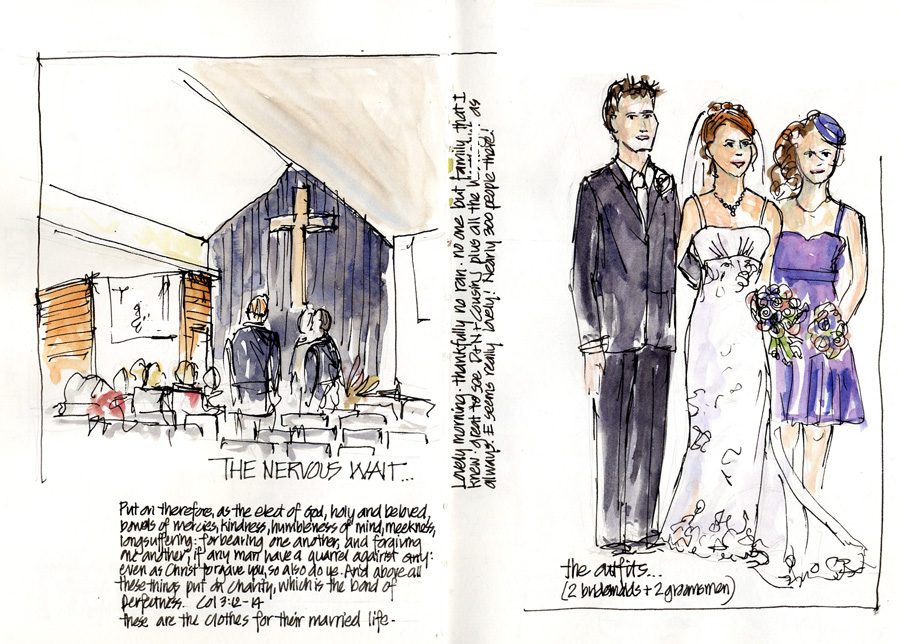 THE NERVOUS WAIT...
Put on therefore, as the elect of God, holy and beloved,
bowels of mercies, kindness, humbleness of mind, meekness,
longsuffering: forbearing one another, and forgiving
one another, if any man have a quarrel against any:
even as Christ forgave you, so also do ye. And above all
these things put on charity, which is the bond of
perfectness. Col 3:12-14
these are the clothes for their married life.
Lovely morning. thankfully no rain. no one but family that I
knew. great to see D+N+Cousin J plus all the as
always. E seems really lovely! Nearly 300 people there!
the outfits...
(2 bridesmaids + 2 groomsmen)